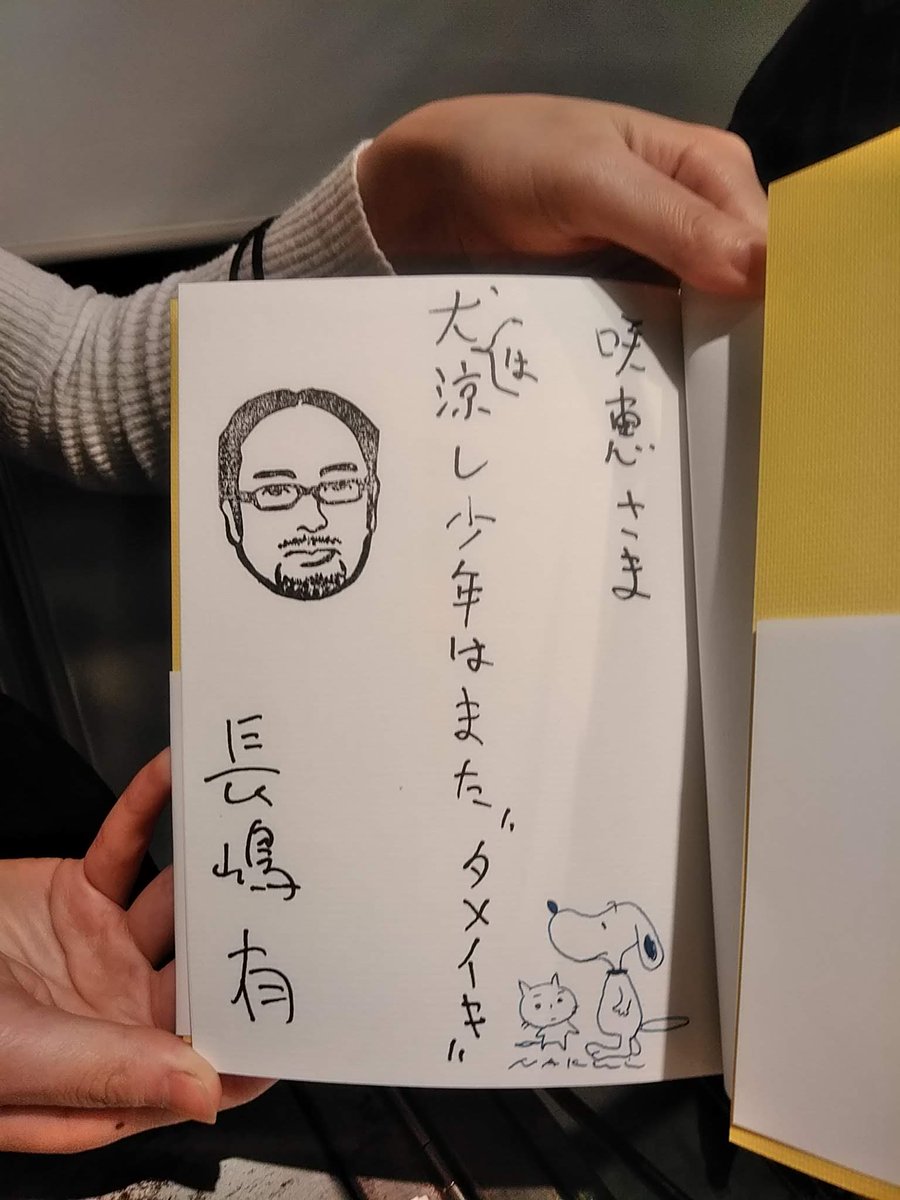 咲恵さま
犬は涼し少年はまた〝タメイキ〟
長嶋有